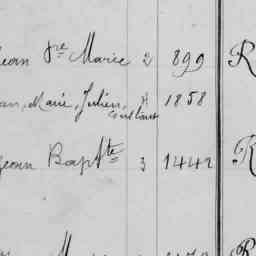 Jean Fre Marie 2 899 R
an, Marie, Julien, 4 1858
Constant
Jean Bapte 3 1442 R